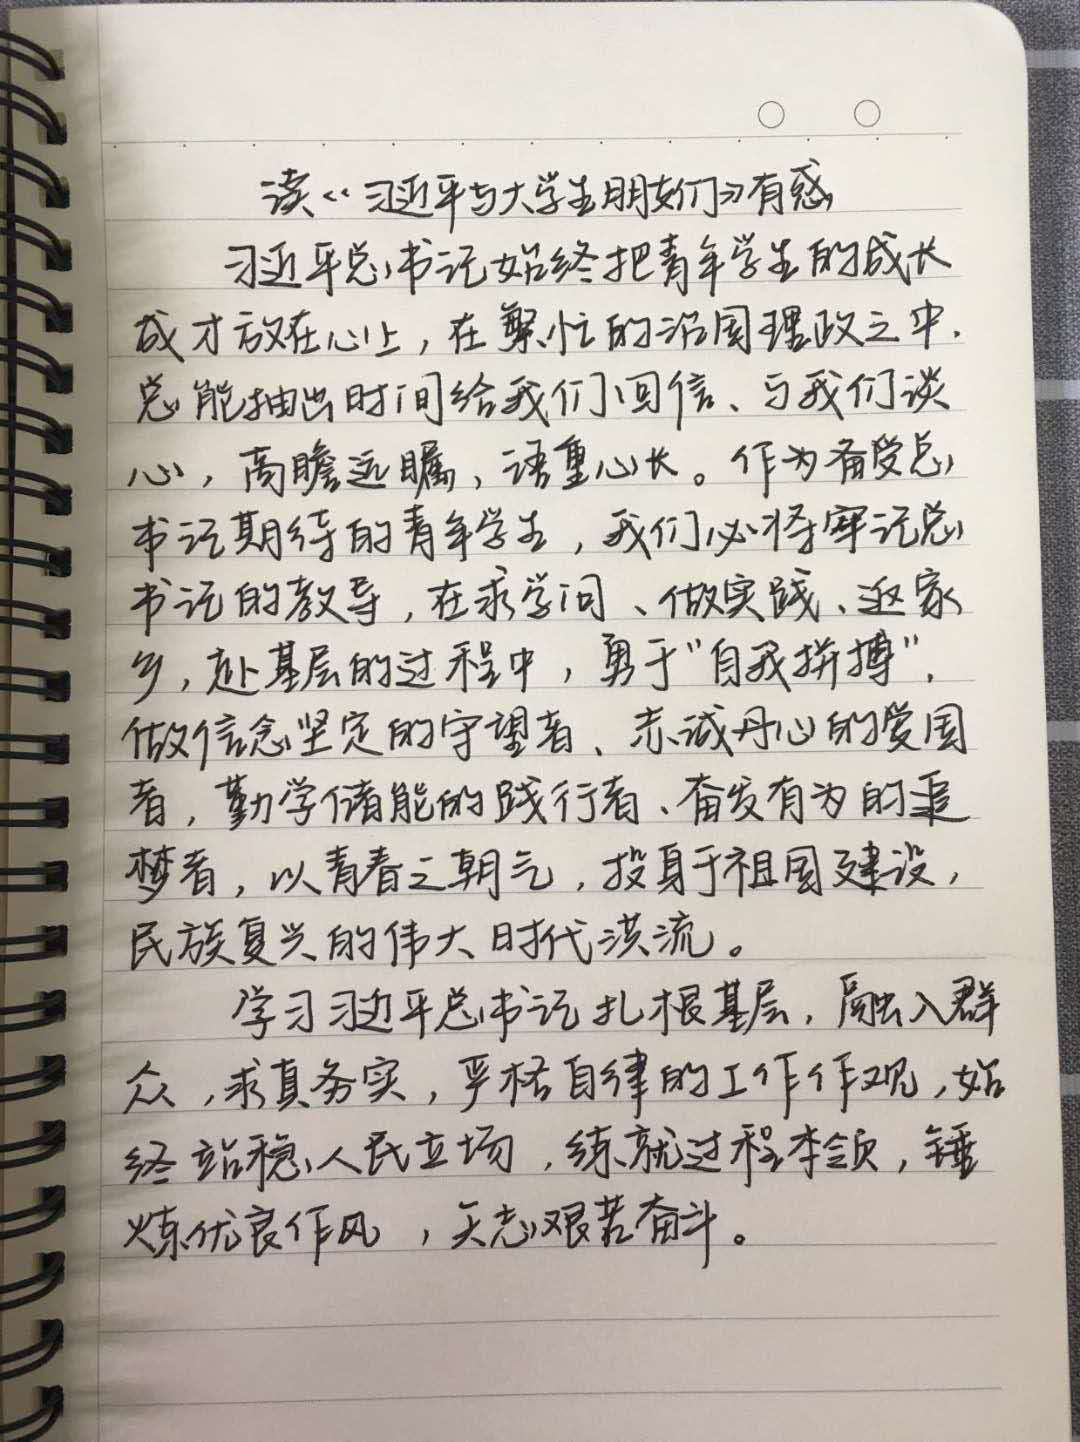 读《习近平与大学生朋友们》有感
习近平总书记始终把青年学生的成长
成才放在心上，在繁忙的治国理政之中，
总能抽出时间给我们回信、与我们谈
心，高瞻远瞩，语重心长。作为备受总
书记期待的青年学生，我们必将牢记总
书记的教导，在求学问、做实践、返家
乡，赴基层的过程中，勇于“自我拼搏”，
做信念坚定的守望者、赤诚丹心的爱国
者，勤学储能的践行者、奋发有为的追
梦者，以青春之朝气，投身于祖国建设，
民族复兴的伟大时代洪流。
学习习近平总书记扎根基层，融入群
众，求真务实，严格自律的工作作观，始
终站稳人民立场，练就过程本领，锤
炼优良作风，矢志艰苦奋斗。